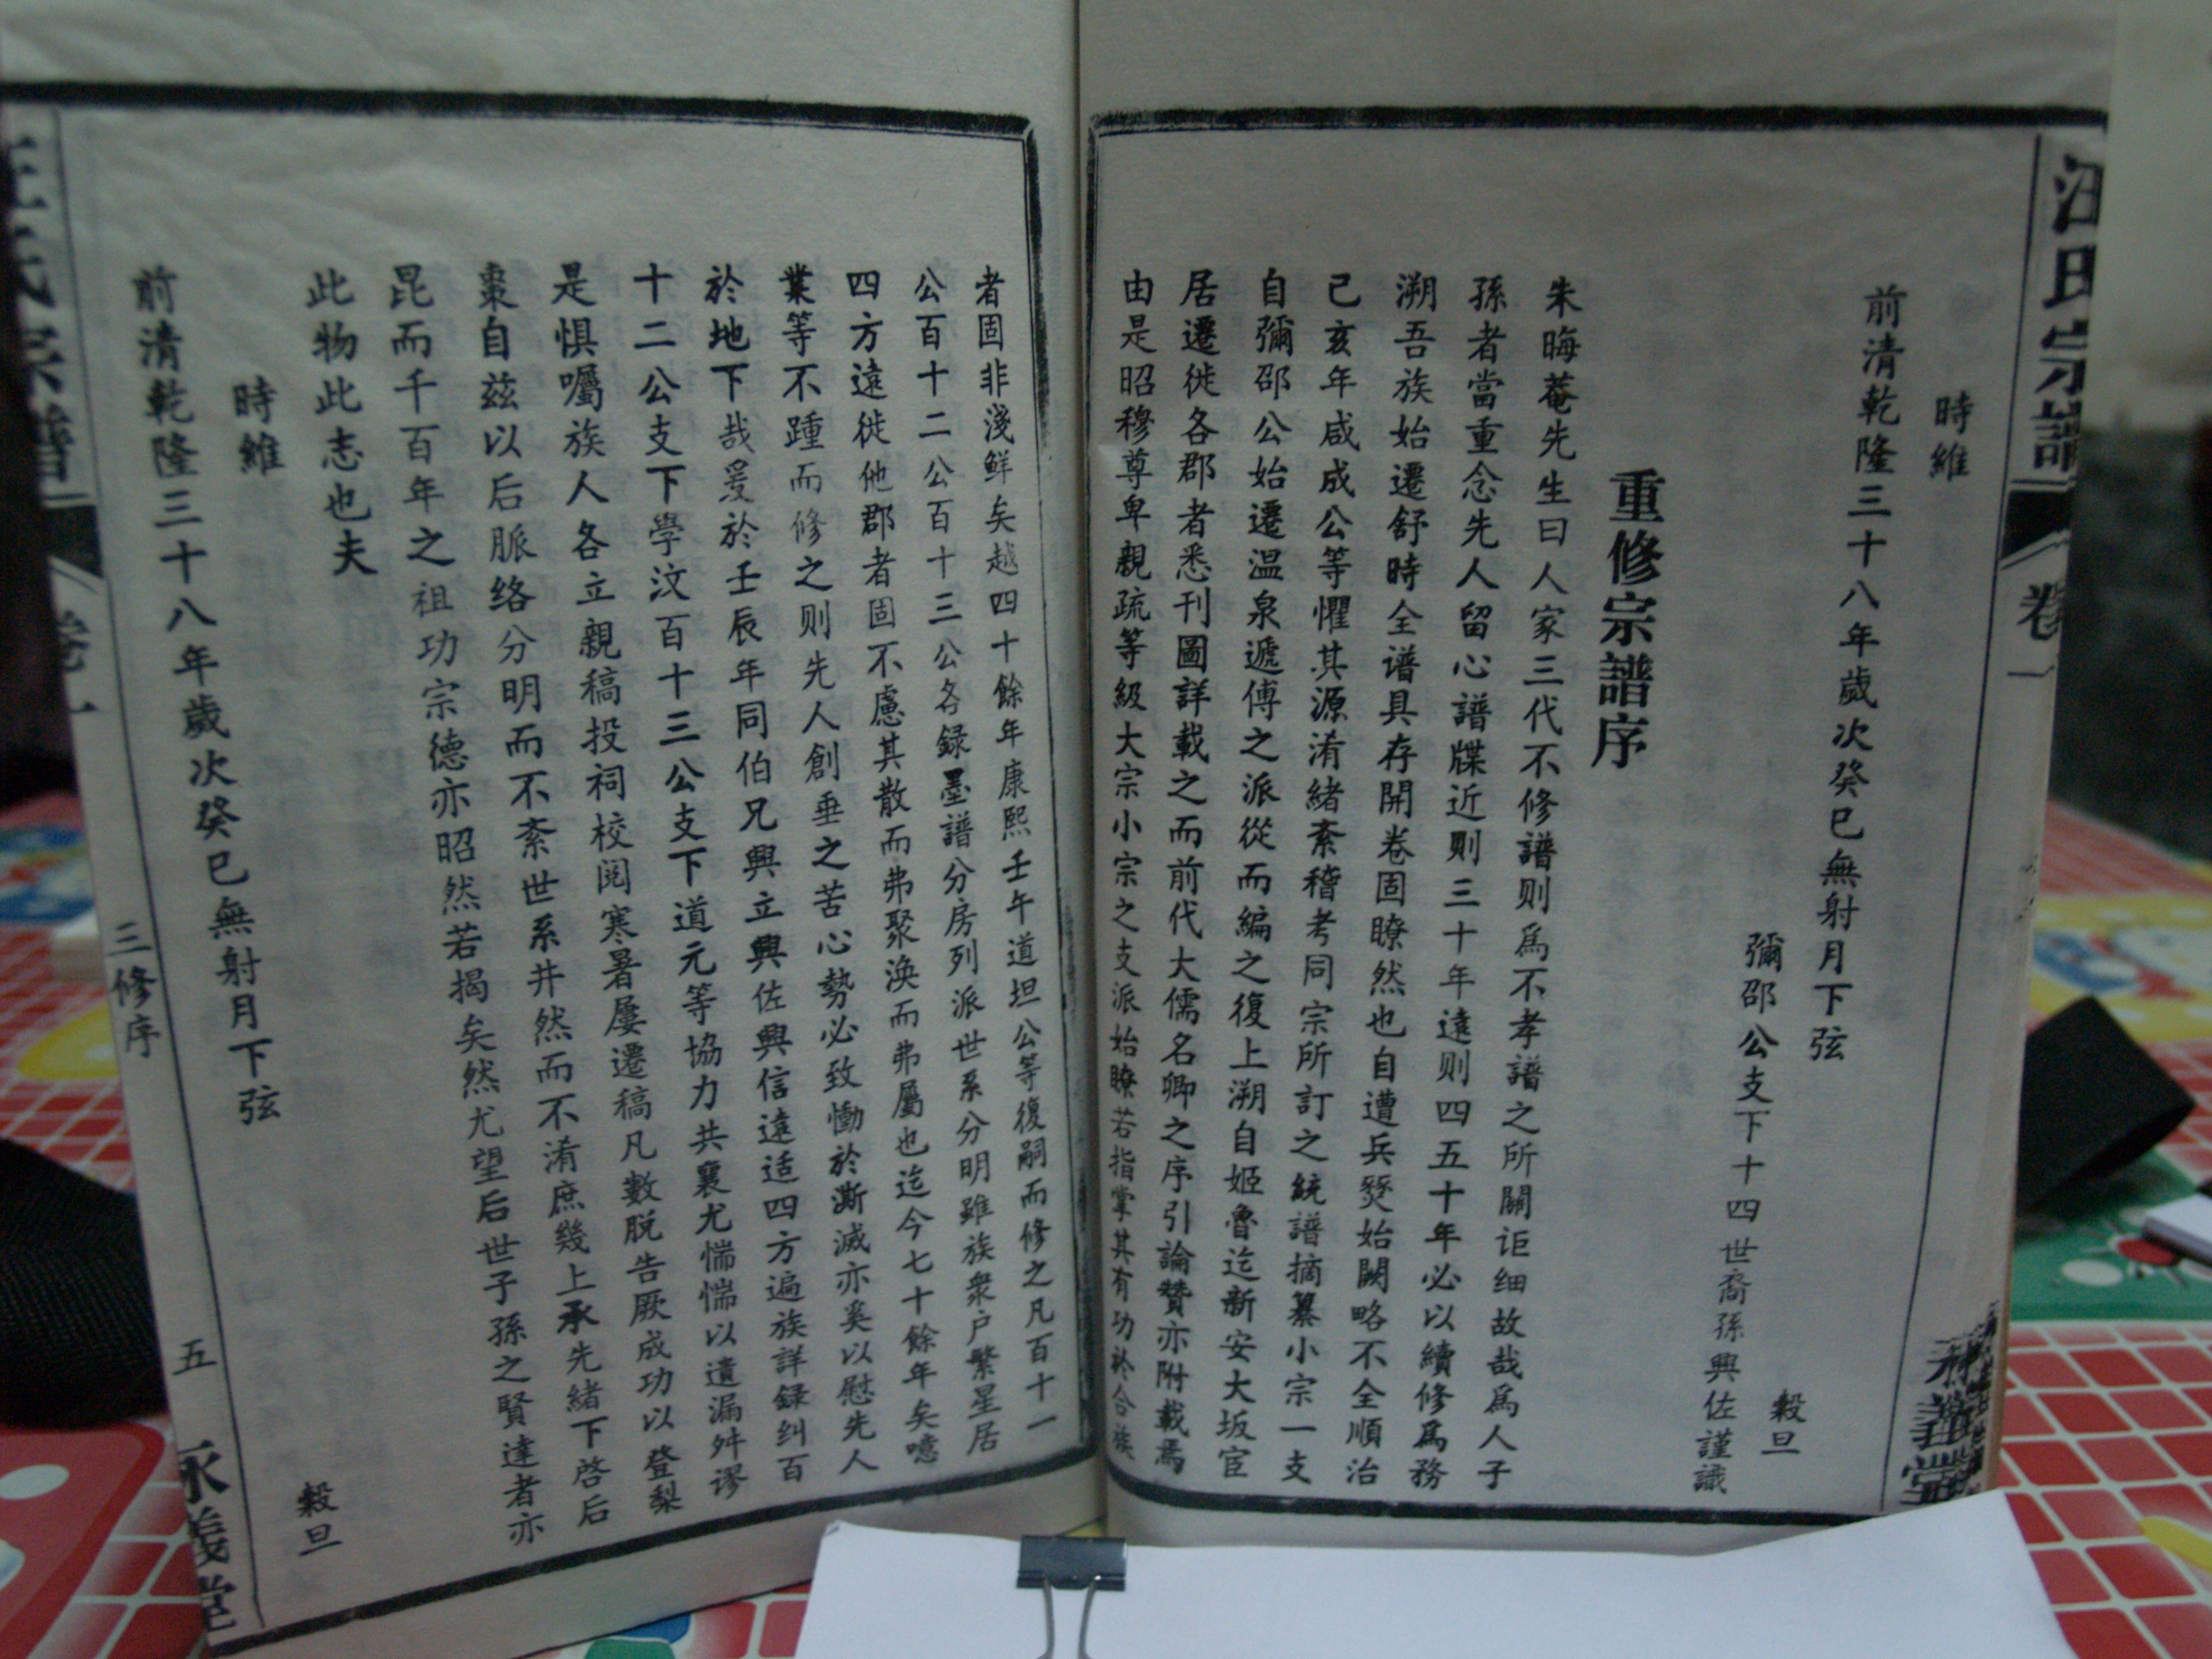 汪氏宗譜
卷一
時維
前清乾隆三十八年歲次癸巳無射月下弦
穀旦
彌邵公支下十四世裔孫興佐謹識
重修宗譜序
朱晦菴先生曰人家三代不修譜则為不孝譜之所關讵细故哉為人子
孫者當重念先人留心譜牒近则三十年遠则四五十年必以續修為務
溯吾族始遷舒時全谱具存開卷固瞭然也自遭兵燹始闕略不全順治
己亥年咸成公等懼其源淆緒紊稽考同宗所訂之統譜摘纂小宗一支
自彌邵公始遷温泉遞傳之派從而編之復上溯自姬魯迄新安大坂宦
居遷徙各郡者悉刊圖詳載之而前代大儒名卿之序引論贊亦附載焉
由是昭穆尊卑親疏等級大宗小宗之支派始瞭若指掌其有功於合族
者固非淺鮮矣越四十餘年康熙壬午道坦公等復嗣而修之凡百十一
公百十二公百十三公各録墨譜分房列派世系分明雖族衆户繁星居
四方遠徙他郡者固不慮其散而弗聚渙而弗屬也迄今七十餘年矣噫
業等不踵而修之则先人創垂之苦心勢必致慟於澌滅亦奚以慰先人
於地下哉爰於壬辰年同伯兄興立興佐興信遠适四方遍族詳録纠百
十二公支下學汶百十三公支下道元等協力共襄尤惴惴以遺漏舛谬
是惧囑族人各立親稿投祠校阅寒暑屢遷稿凡數脱告厥成功以登梨
棗自兹以后脈络分明而不紊世系井然而不淆庶幾上承先緒下啓后
昆而千百年之祖功宗德亦昭然若揭矣然尤望后世子孫之賢達者亦
此物此志也夫
時維
前清乾隆三十八年歲次癸巳無射月下弦
穀旦
三修序
五
承義堂